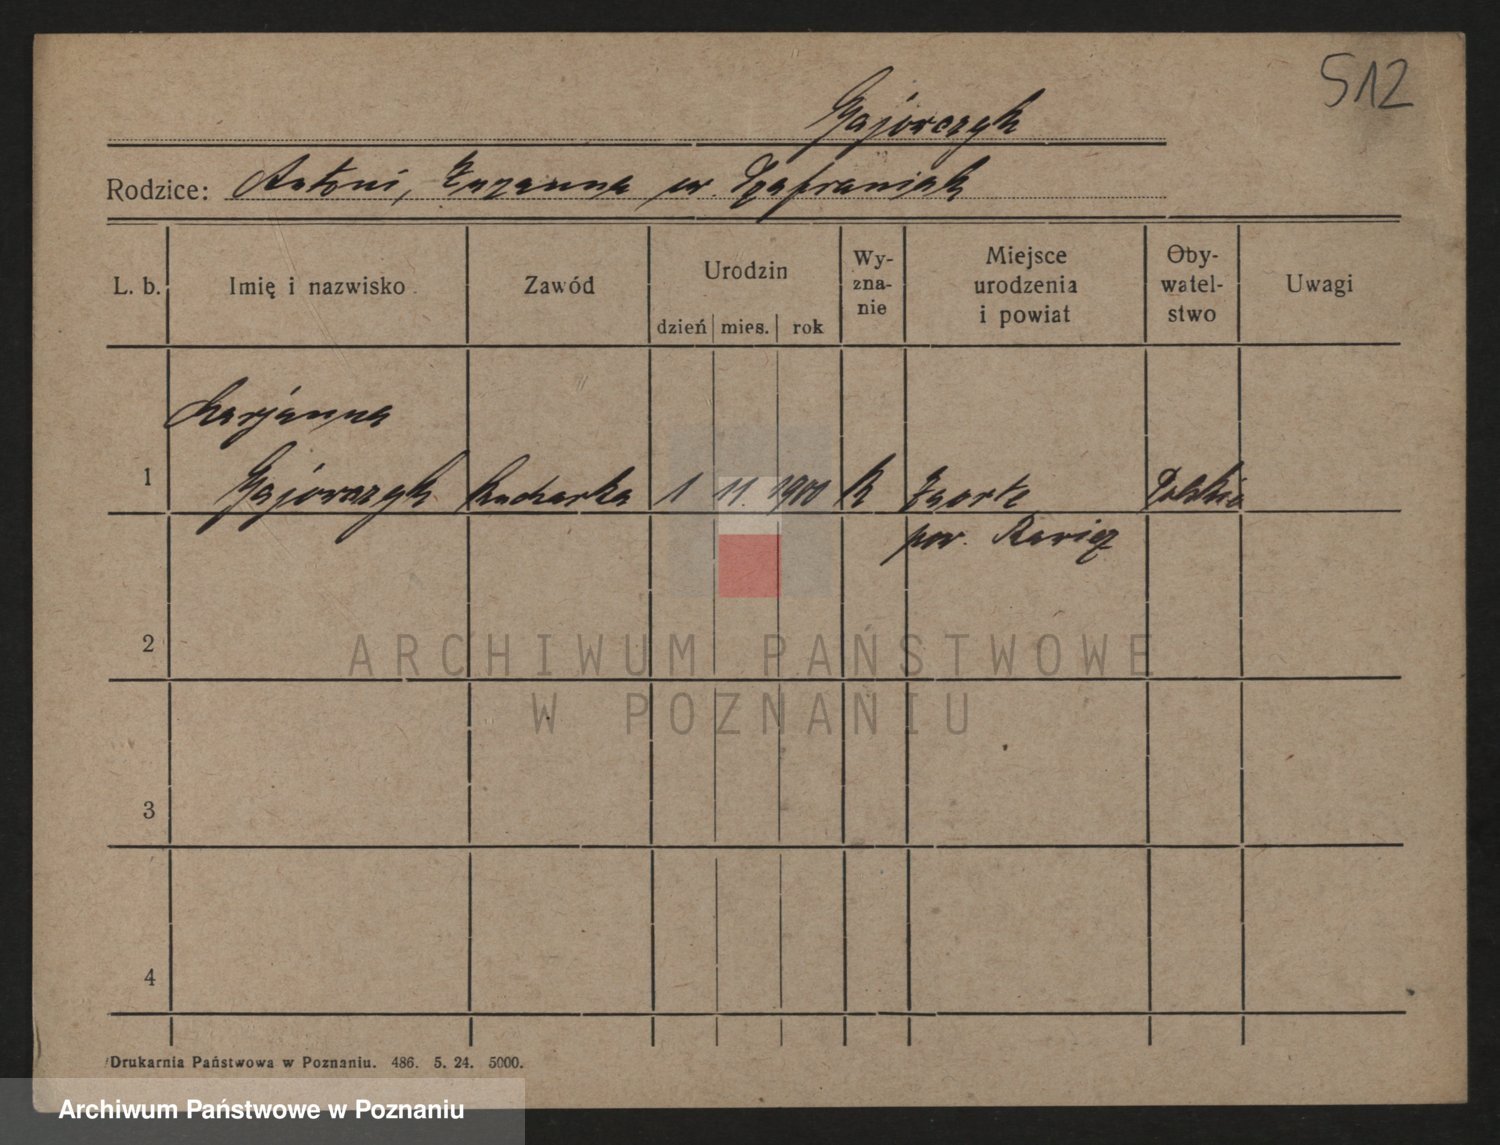 512
Gajówczyk
Rodzice: Antoni, Zuzanna ur. Szafraniak
L. b. Imię i nazwisko Zawód Urodzin dzień mies. rok Wy-zna-nie Miejsce urodzenia i powiat Oby-watel-stwo Uwagi
Marjanna
1 Gajówczyk Kucharka 1 11. 1900 K Polska
pow. Rawicz
2
3
4
Drukarnia Państwowa w Poznaniu. 486. 5. 24. 5000.
ARCHIWUM PAŃSTWOWE
W POZNANIU
Archiwum Państwowe w Poznaniu